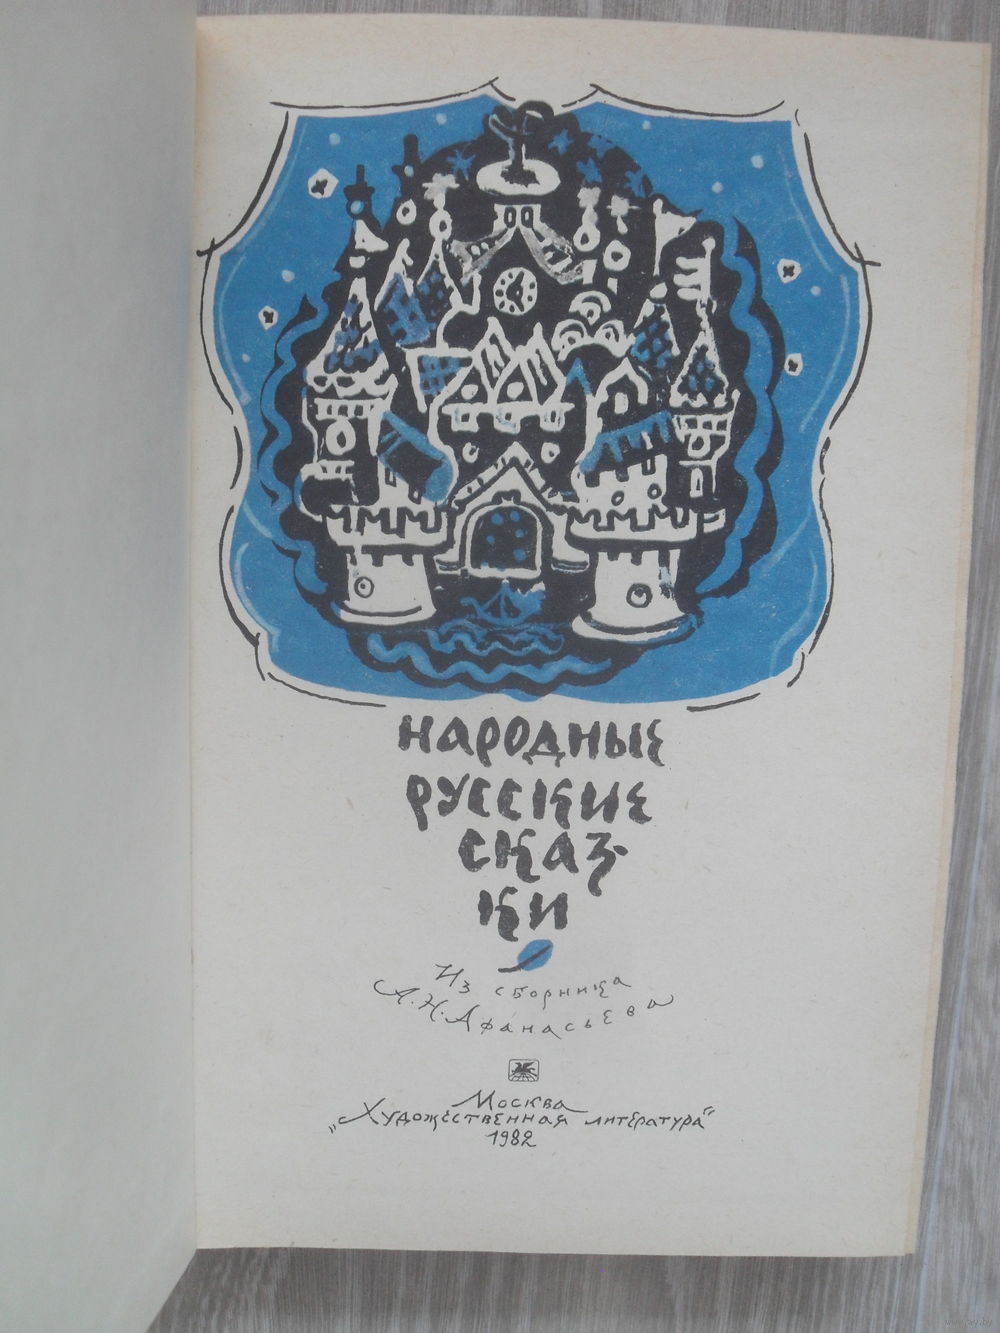 народные
русские
сказ-
ки
Из сборника
А.Н. Афанасьева
Москва
„Художественная литература“
1982